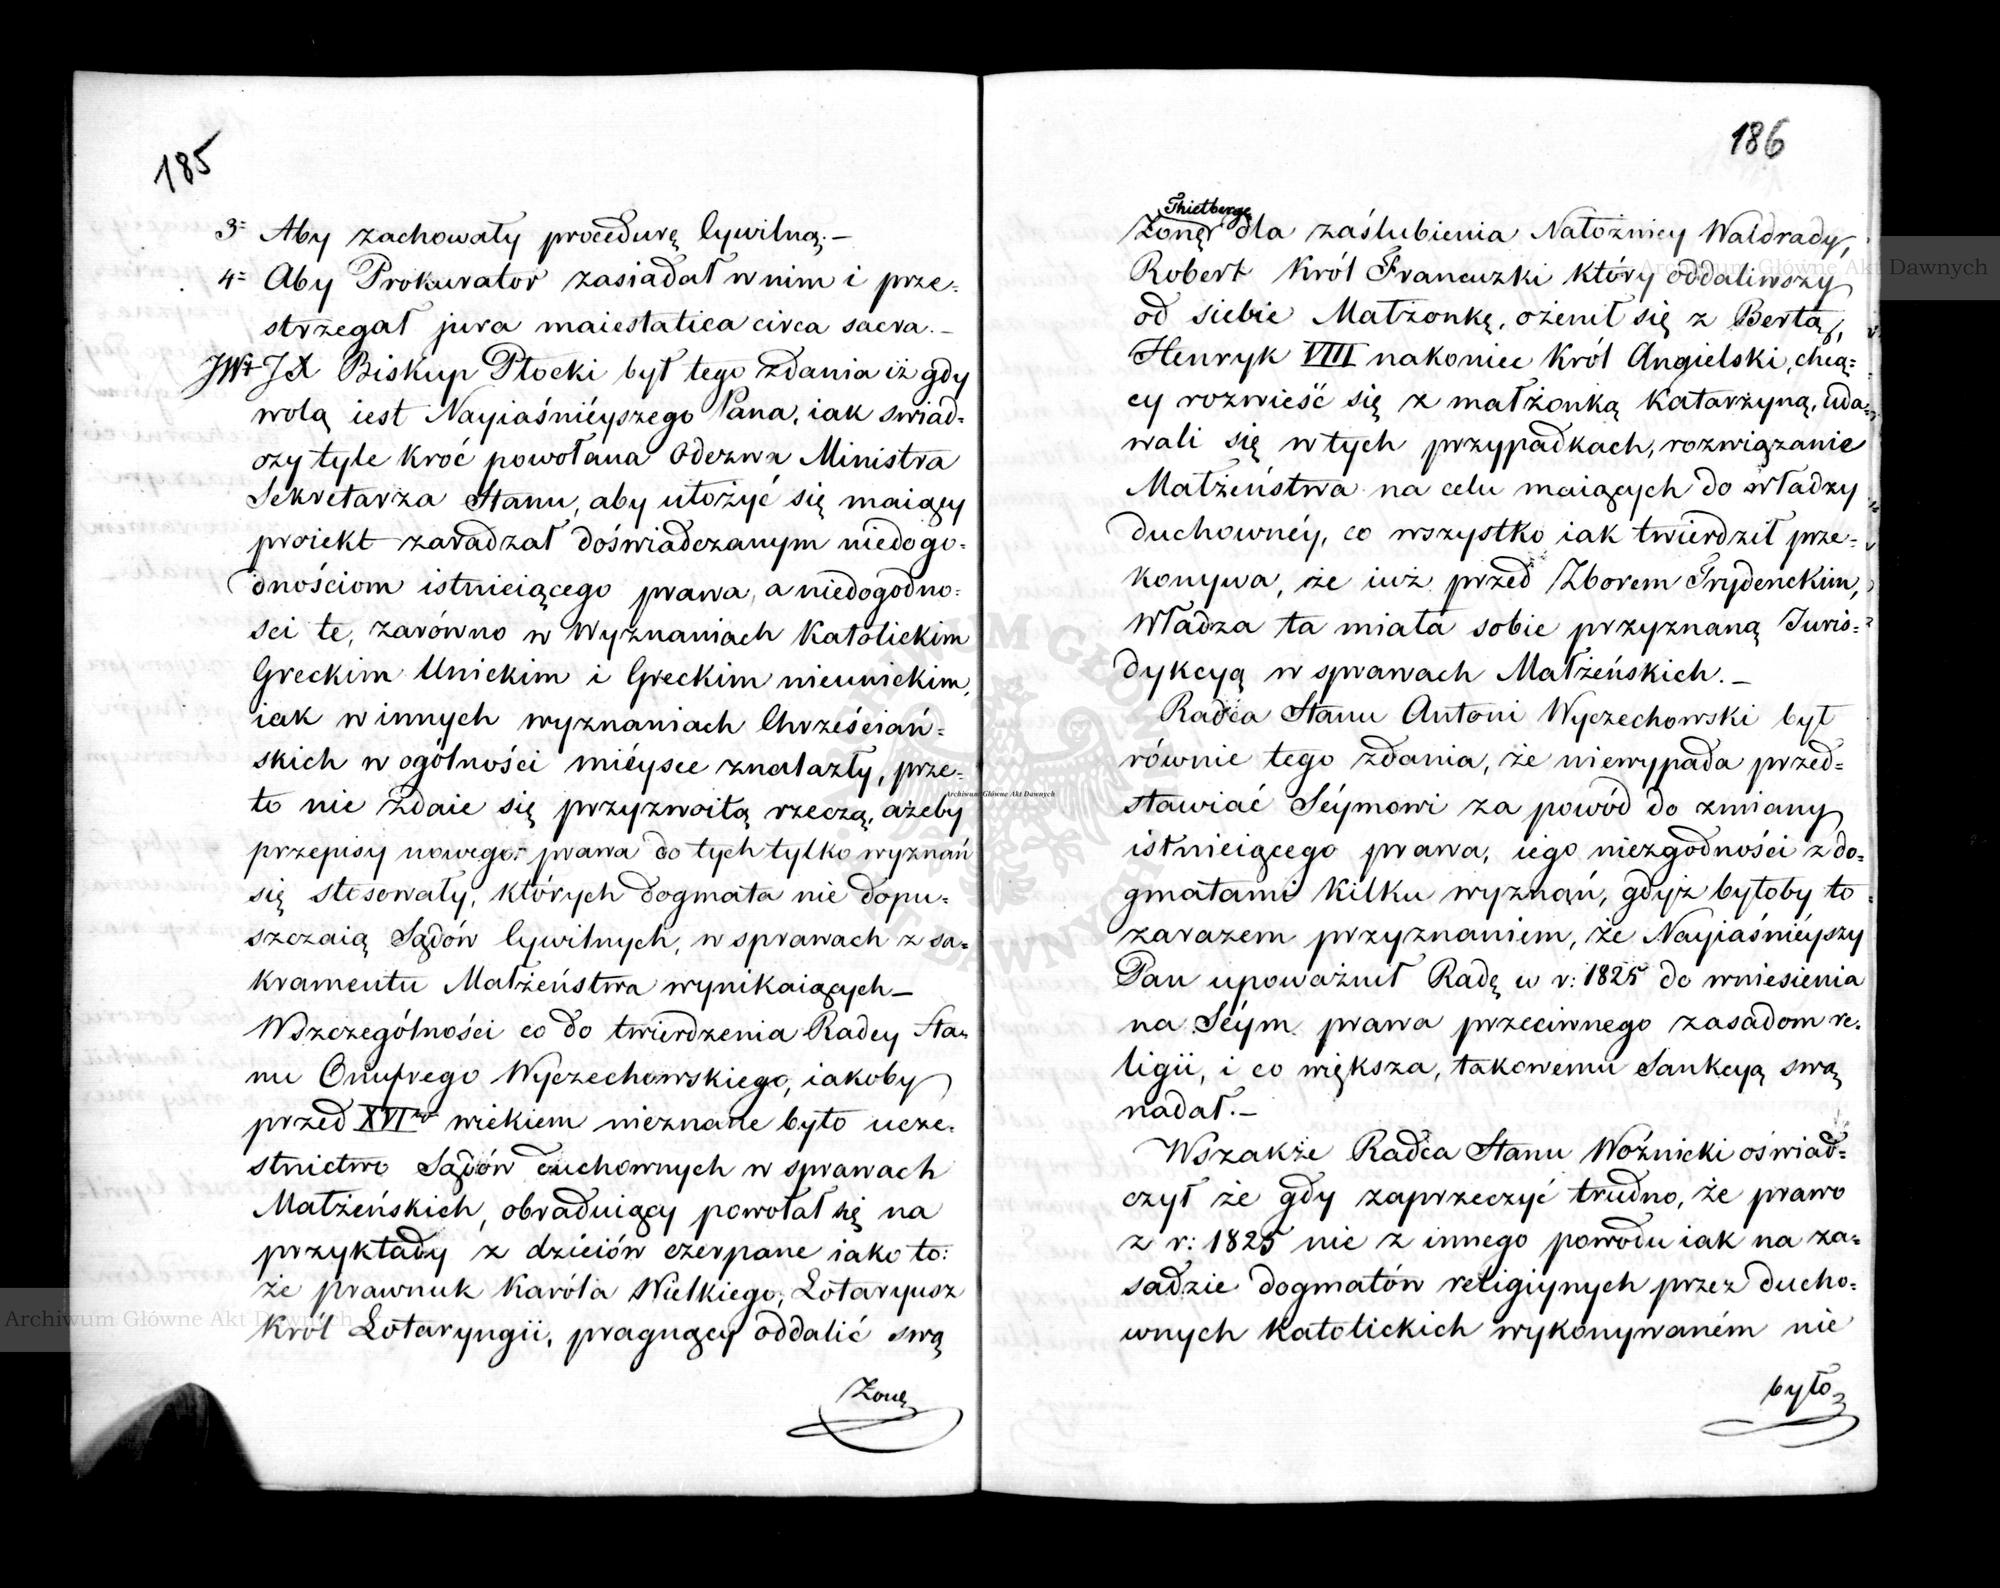 185
3= Aby zachowały procedurę Cywilną;—
4= Aby Prokurator zasiadał w nim i prze=
strzegał jura maiestatica circa sacra.—
JWt JX Biskup Płocki był tego zdania iż gdy
wolą iest Nayiaśnieyszego Pana, iak swiad=
czy tyle kroć powołana Odezwa Ministra
Sekretarza Stanu, aby ułożyć się maiący
proiekt zaradzał doświadczanym niedogo=
dnościom istnieiącego prawa, a niedogodno=
sci te, zarówno w Wyznaniach Katolickim
Greckim Unickim i Greckim nieunickim,
iak w innych wyznaniach Chrześciań=
skich w ogólności mieysce znalazły, prze=
to nie zdaie się przyzwoitą rzeczą, ażeby
przepisy nowego prawa do tych tylko wyznań
się stosowały, których dogmata nie dopu=
szczaią Sądów Cywilnych, w sprawach z sa=
kramentu Małżeństwa wynikaiących—
W szczególności co do twierdzenia Radcy Sta=
nu Onufrego Wyczechowskiego, iakoby
przed XVI wiekiem nieznane było ucze=
stnictwo Sądów duchownych w sprawach
Małżeńskich, obraduiący powołał się na
przykłady z dzieiów czerpane iako to:
że prawnuk Karóla Wielkiego, Lotaryusz
Król Lotaryngii, pragnący oddalić swą
Żonę
186
Thietbergę
Żonę dla zaślubienia Nałożnicy Waldrady,
Robert Król Francuzki który oddaliwszy
od siebie Małżonkę, ożenił się z Bertą,
Henryk VIII nakoniec Król Angielski, chcą=
cy rozwieść się z małżonką Katarzyną, uda=
wali się w tych przypadkach, rozwiązanie
Małżeństwa na celu maiących do władzy
duchownéy, co wszystko iak twierdził prze=
konywa, że iuż przed Zborem Trydenckim,
Władza ta miała sobie przyznaną Juris=
dykcyą w sprawach Małżeńskich.—
Radca Stanu Antoni Wyczechowski był
równie tego zdania, że niewypada przed=
stawiać Séymowi za powód do zmiany
istnieiącego prawa, iego niezgodności z do=
gmatami kilku wyznań, gdyż byłoby to
zarazem przyznaniem, że Nayiaśnieyszy
Pan upoważnił Radę w r: 1825 do wniesienia
na Séym prawa przeciwnego zasadom re=
ligii, i co większa, takowemu Sankcyą swą
nadał.—
Wszakże Radca Stanu Woźnicki oświad=
czył że gdy zaprzeczyć trudno, że prawo
z r: 1825 nie z innego powodu iak na za=
sadzie dogmatów religiynych przez ducho=
wnych katolickich wykonywaném nie
było
Archiwum Główne Akt Dawnych
Archiwum Główne Akt Dawnych
Archiwum Główne Akt Dawnych
ARCHIWUM GŁÓWNE AKT DAWNYCH